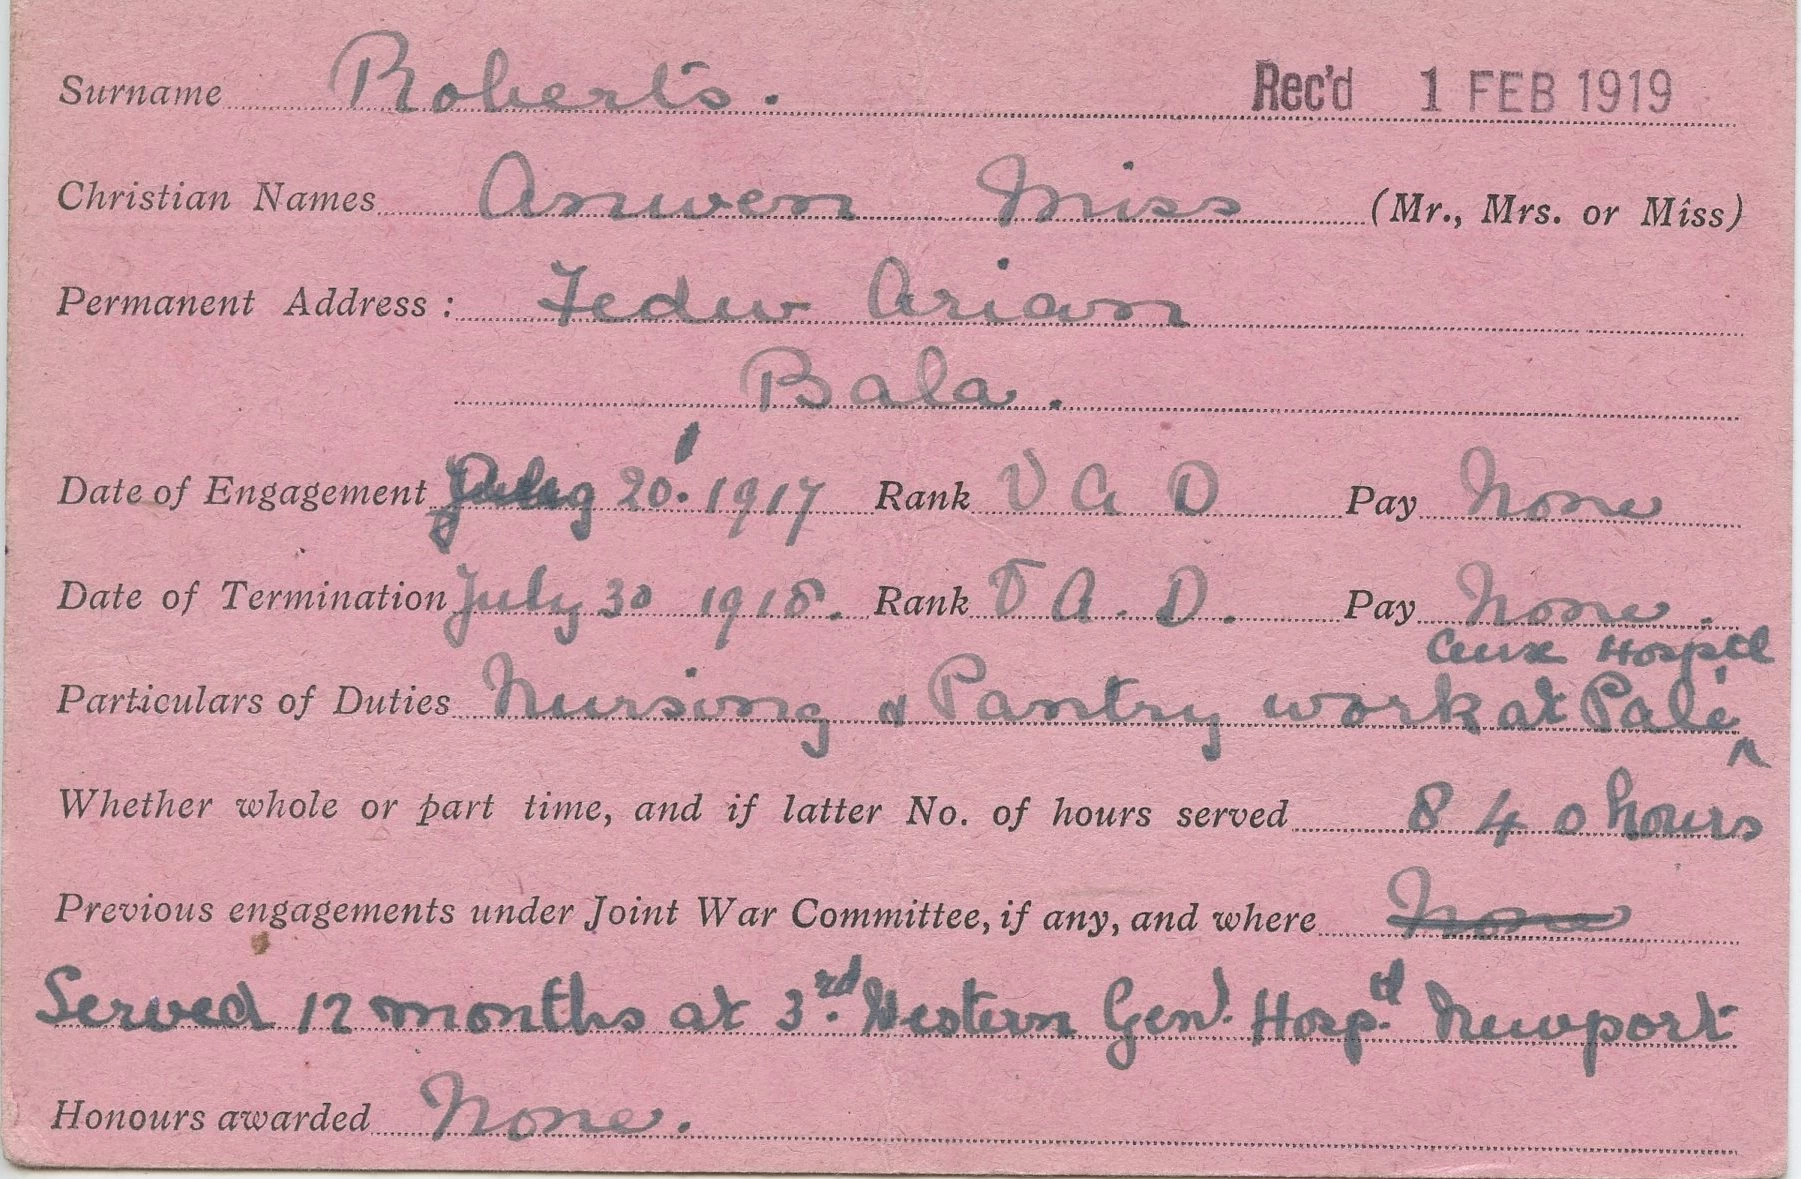 Surname Roberts. Rec'd 1 FEB 1919
Christian Names Anwen Miss (Mr., Mrs. or Miss)
Permanent Address : Fedw Arian
Bala.
Date of Engagement 20. 1917 Rank V A D Pay None
Date of Termination July 30 1918. Rank V A. D. Pay None.
Aux Hospital
Particulars of Duties Nursing & Pantry work at Palé ^
Whether whole or part time, and if latter No. of hours served 840 hours
Previous engagements under Joint War Committee, if any, and where None
Served 12 months at 3.rd Western Genl. Hosp.tl Newport
Honours awarded None.